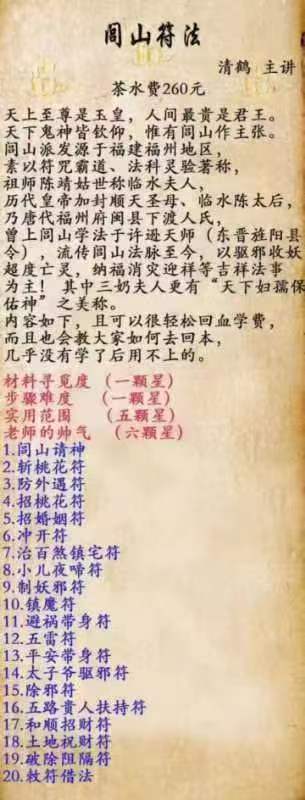 闾山符法
清鹤 主讲
茶水费260元
天上至尊是玉皇，人间最贵是君王。
天下鬼神皆钦仰，惟有闾山作主张。
闾山派发源于福建福州地区，
素以符咒霸道、法科灵验著称，
祖师陈靖姑世称临水夫人，
历代皇帝加封顺天圣母、临水陈太后，
乃唐代福州府闽县下渡人氏，
曾上闾山学法于许逊天师（东晋旌阳县
令），流传闾山法脉至今，以驱邪收妖
超度亡灵，纳福消灾迎祥等吉祥法事
为主！ 其中三奶夫人更有“天下妇孺保
佑神”之美称。
内容如下，且可以很轻松回血学费，
而且也会教大家如何去回本，
几乎没有学了后用不上的。
材料寻觅度 （一颗星）
步骤难度 （一颗星）
实用范围 （五颗星）
老师的帅气 （六颗星）
1.闾山请神
2.斩桃花符
3.防外遇符
4.招桃花符
5.招婚姻符
6.冲开符
7.治百煞镇宅符
8.小儿夜啼符
9.制妖邪符
10.镇魔符
11.避祸带身符
12.五雷符
13.平安带身符
14.太子爷驱邪符
15.除邪符
16.五路贵人扶持符
17.和顺招财符
18.土地祝财符
19.破除阻隔符
20.敕符借法